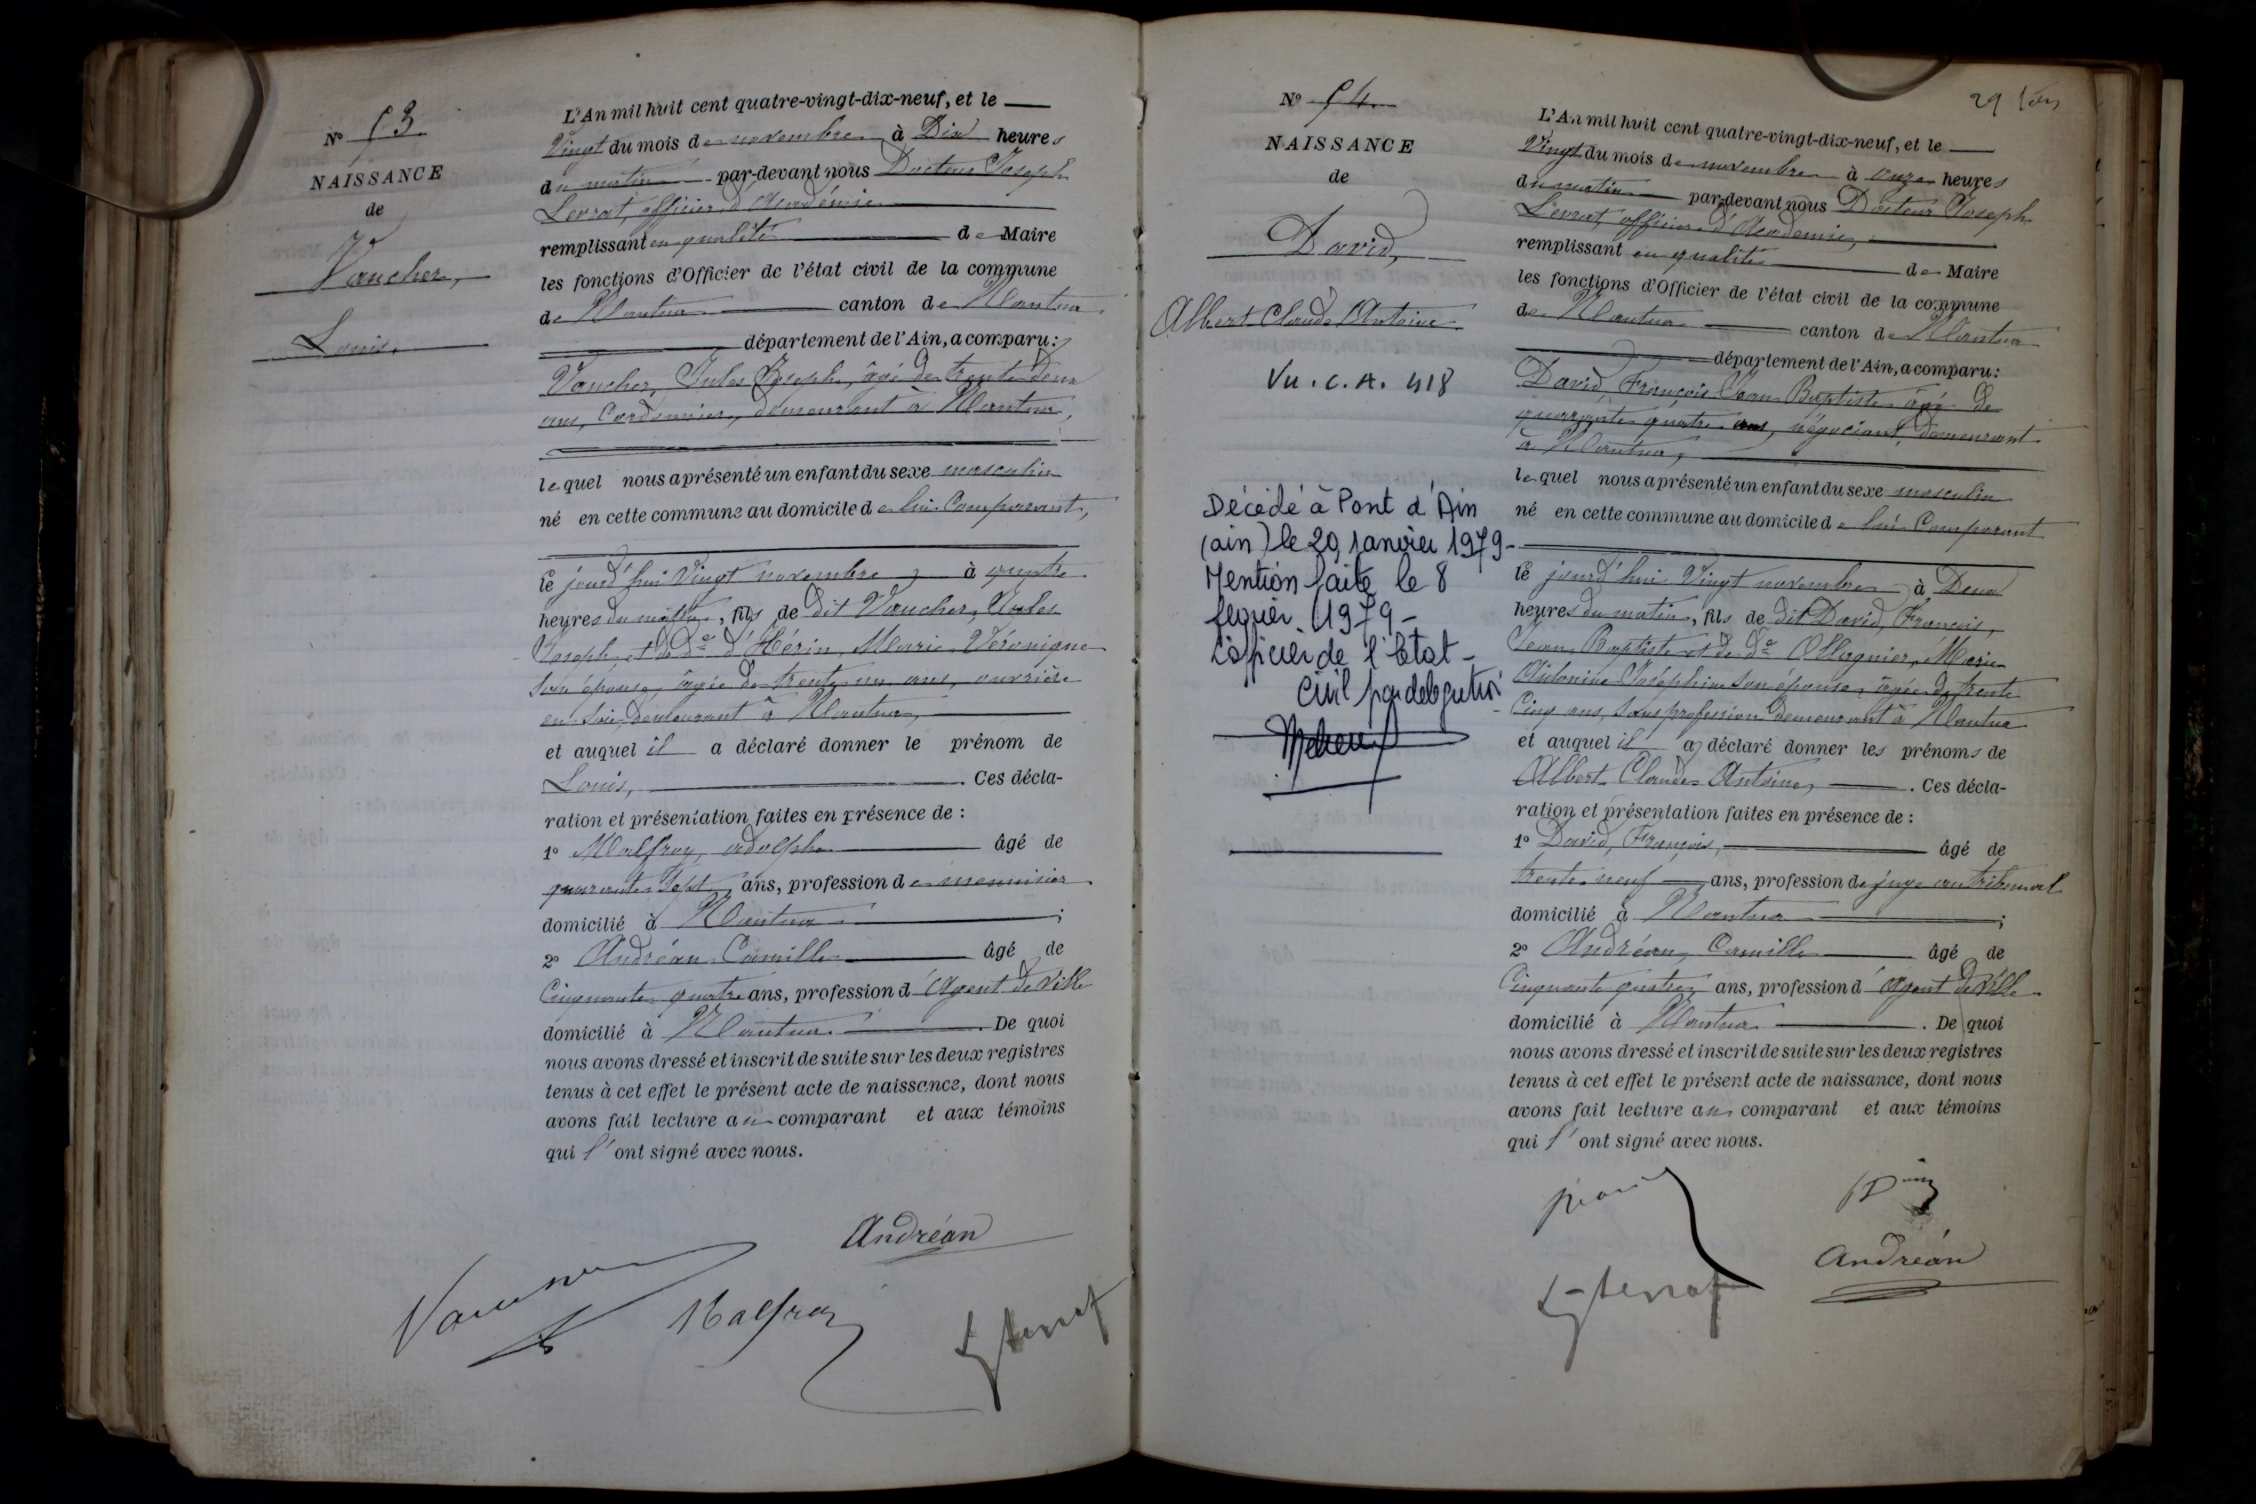 N° 53
NAISSANCE
de
Vaucher,
Louis,
L'An mil huit cent quatre-vingt-dix-neuf, et le
Vingt du mois de novembre à Dix heures
du matin par-devant nous Docteur Joseph
Levrat, officier d'Académie
remplissant en qualité de Maire
les fonctions d'Officier de l'état civil de la commune
de Nantua canton de Nantua
département de l'Ain, a comparu:
Vaucher, Jules Joseph, âgé de trente deux
ans, Cordonnier, demeurant à Nantua,
lequel nous a présenté un enfant du sexe masculin
né en cette commune au domicile de lui Comparant,
ce jourd'hui Vingt novembre, à quatre
heures du matin, fils de dit Vaucher, Jules
Joseph, et de de d'Hérin, Marie Véronique
son épouse, âgée de trente un ans, ouvrière
en soie, demeurant à Nantua,
et auquel il a déclaré donner le prénom de
Louis, . Ces décla-
ration et présentation faites en présence de :
1° Malfroy, adolphe âgé de
quarante Sept ans, profession de menuisier
domicilié à Nantua ;
2° Andréan Camille âgé de
Cinquante quatre ans, profession d'Agent de Ville
domicilié à Nantua . De quoi
nous avons dressé et inscrit de suite sur les deux registres
tenus à cet effet le présent acte de naissance, dont nous
avons fait lecture au comparant et aux témoins
qui l'ont signé avec nous.
Andréan
Malfroy
29
N° 54
NAISSANCE
de
David,
Albert Claude Antoine
Vu. C. A. 418
Décédé à Pont d'Ain
(ain) le 20 janvier 1979-
Mention faite le 8
février 1979-
L'officier de l'Etat-
Civil par délégation
L'An mil huit cent quatre-vingt-dix-neuf, et le
Vingt du mois de novembre à onze heures
du matin par-devant nous Docteur Joseph
Levrat officier d'Académie,
remplissant en qualité de Maire
les fonctions d'Officier de l'état civil de la commune
de Nantua canton de Nantua
département de l'Ain, a comparu:
David, François Jean Baptiste âgé de
quarante quatre ans, négociant, demeurant
à Nantua,
lequel nous a présenté un enfant du sexe masculin
né en cette commune au domicile de lui Comparant
ce jourd'hui Vingt novembre à Deux
heures du matin, fils de dit David, François,
Jean Baptiste et de de Ollagnier, Marie
Antonine Joséphine son épouse, âgée de trente
Cinq ans, sans profession demeurant à Nantua
et auquel il a déclaré donner les prénoms de
Albert Claude Antoine, . Ces décla-
ration et présentation faites en présence de :
1° David, François, âgé de
trente neuf ans, profession de juge au tribunal
domicilié à Nantua ;
2° Andréan, Camille âgé de
Cinquante quatre ans, profession d'Agent de Ville
domicilié à Nantua . De quoi
nous avons dressé et inscrit de suite sur les deux registres
tenus à cet effet le présent acte de naissance, dont nous
avons fait lecture au comparant et aux témoins
qui l'ont signé avec nous.
Andréan